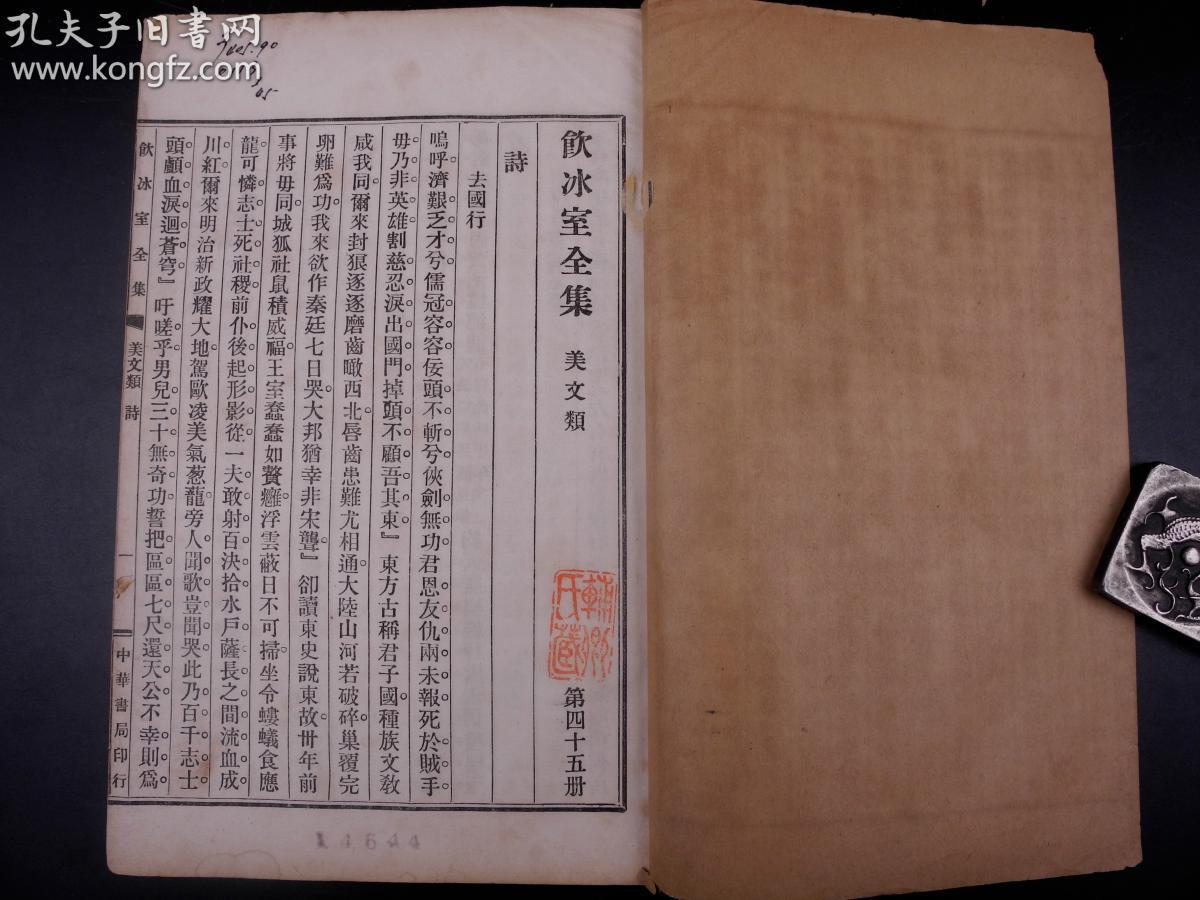 孔夫子旧书网
www.kongfz.com
飲冰室全集 美文類 第四十五册
詩
去國行
嗚呼濟艱乏才兮儒冠容容佞頭不斬兮俠劍無功君恩友仇兩未報死於賊手
毋乃非英雄割慈忍淚出國門掉頭不顧吾其東』東方古稱君子國種族文敎
咸我同爾來封狼逐逐磨齒瞰西北唇齒患難尤相通大陸山河若破碎巢覆完
卵難爲功我來欲作秦廷七日哭大邦猶幸非宋聾』卻讀東史說東故卅年前
事將毋同城狐社鼠積威福王室蠢蠢如贅癰浮雲蔽日不可掃坐令螻蟻食應
龍可憐志士死社稷前仆後起形影從一夫敢射百決拾水戶薩長之間流血成
川紅爾來明治新政耀大地駕歐凌美氣葱蘢旁人聞歌豈聞哭此乃百千志士
頭顱血淚迴蒼穹』吁嗟乎男兒三十無奇功誓把區區七尺還天公不幸則爲
飲冰室全集 美文類 詩 一 中華書局印行
14644